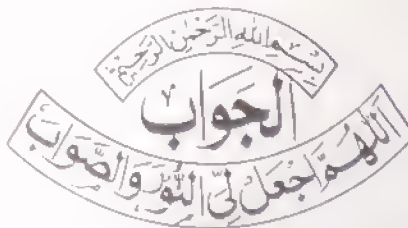 بِسْمِ اللهِ الرَّحْمٰنِ الرَّحِيْمِ
الجَوَاب
اَللّٰهُمَّ اجْعَلْ لِيَّ النُّوْرَ وَالصَّوَابَ